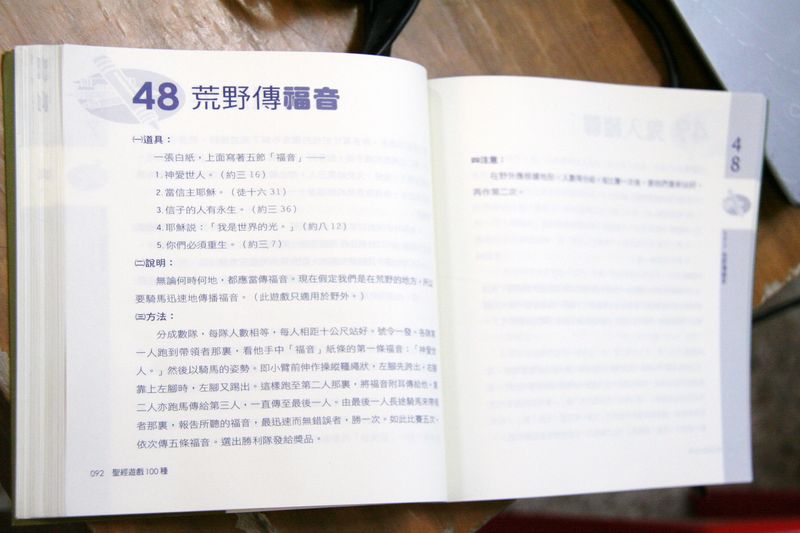 48 荒野傳福音
㈠道具：
一張白紙，上面寫著五節「福音」——
1. 神愛世人。（約三 16）
2. 當信主耶穌。（徒十六 31）
3. 信子的人有永生。（約三 36）
4. 耶穌說：「我是世界的光。」（約八 12）
5. 你們必須重生。（約三 7）
㈡說明：
無論何時何地，都應當傳福音。現在假定我們是在荒野的地方，所以
要騎馬迅速地傳播福音。（此遊戲只適用於野外。）
㈢方法：
分成數隊，每隊人數相等，每人相距十公尺站好。號令一發，各隊第
一人跑到帶領者那裏，看他手中「福音」紙條的第一條福音：「神愛世
人。」然後以騎馬的姿勢，即小臂前伸作操縱韁繩狀，左腳先跨出，右腳
靠上左腳時，左腳又踢出。這樣跑至第二人那裏，將福音附耳傳給他。第
二人亦跑馬傳給第三人，一直傳至最後一人。由最後一人長途騎馬來帶領
者那裏，報告所聽的福音，最迅速而無錯誤者，勝一次。如此比賽五次，
依次傳五條福音。選出勝利隊發給獎品。
092 聖經遊戲 100 種
48
㈣注意：
在野外應根據地形、人數等分組。每比賽一次後，要他們重新站好，
再作第二次。